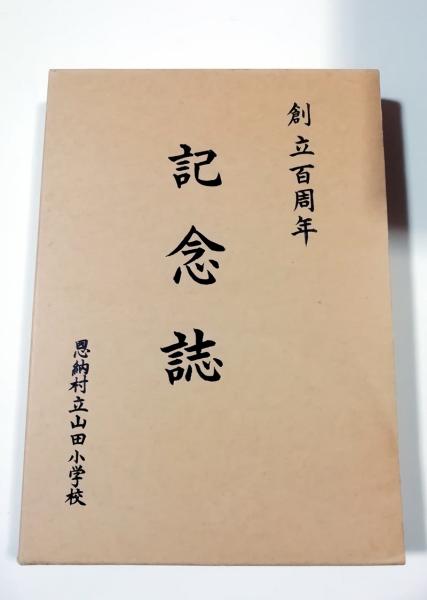 創立百周年
記念誌
恩納村立山田小学校